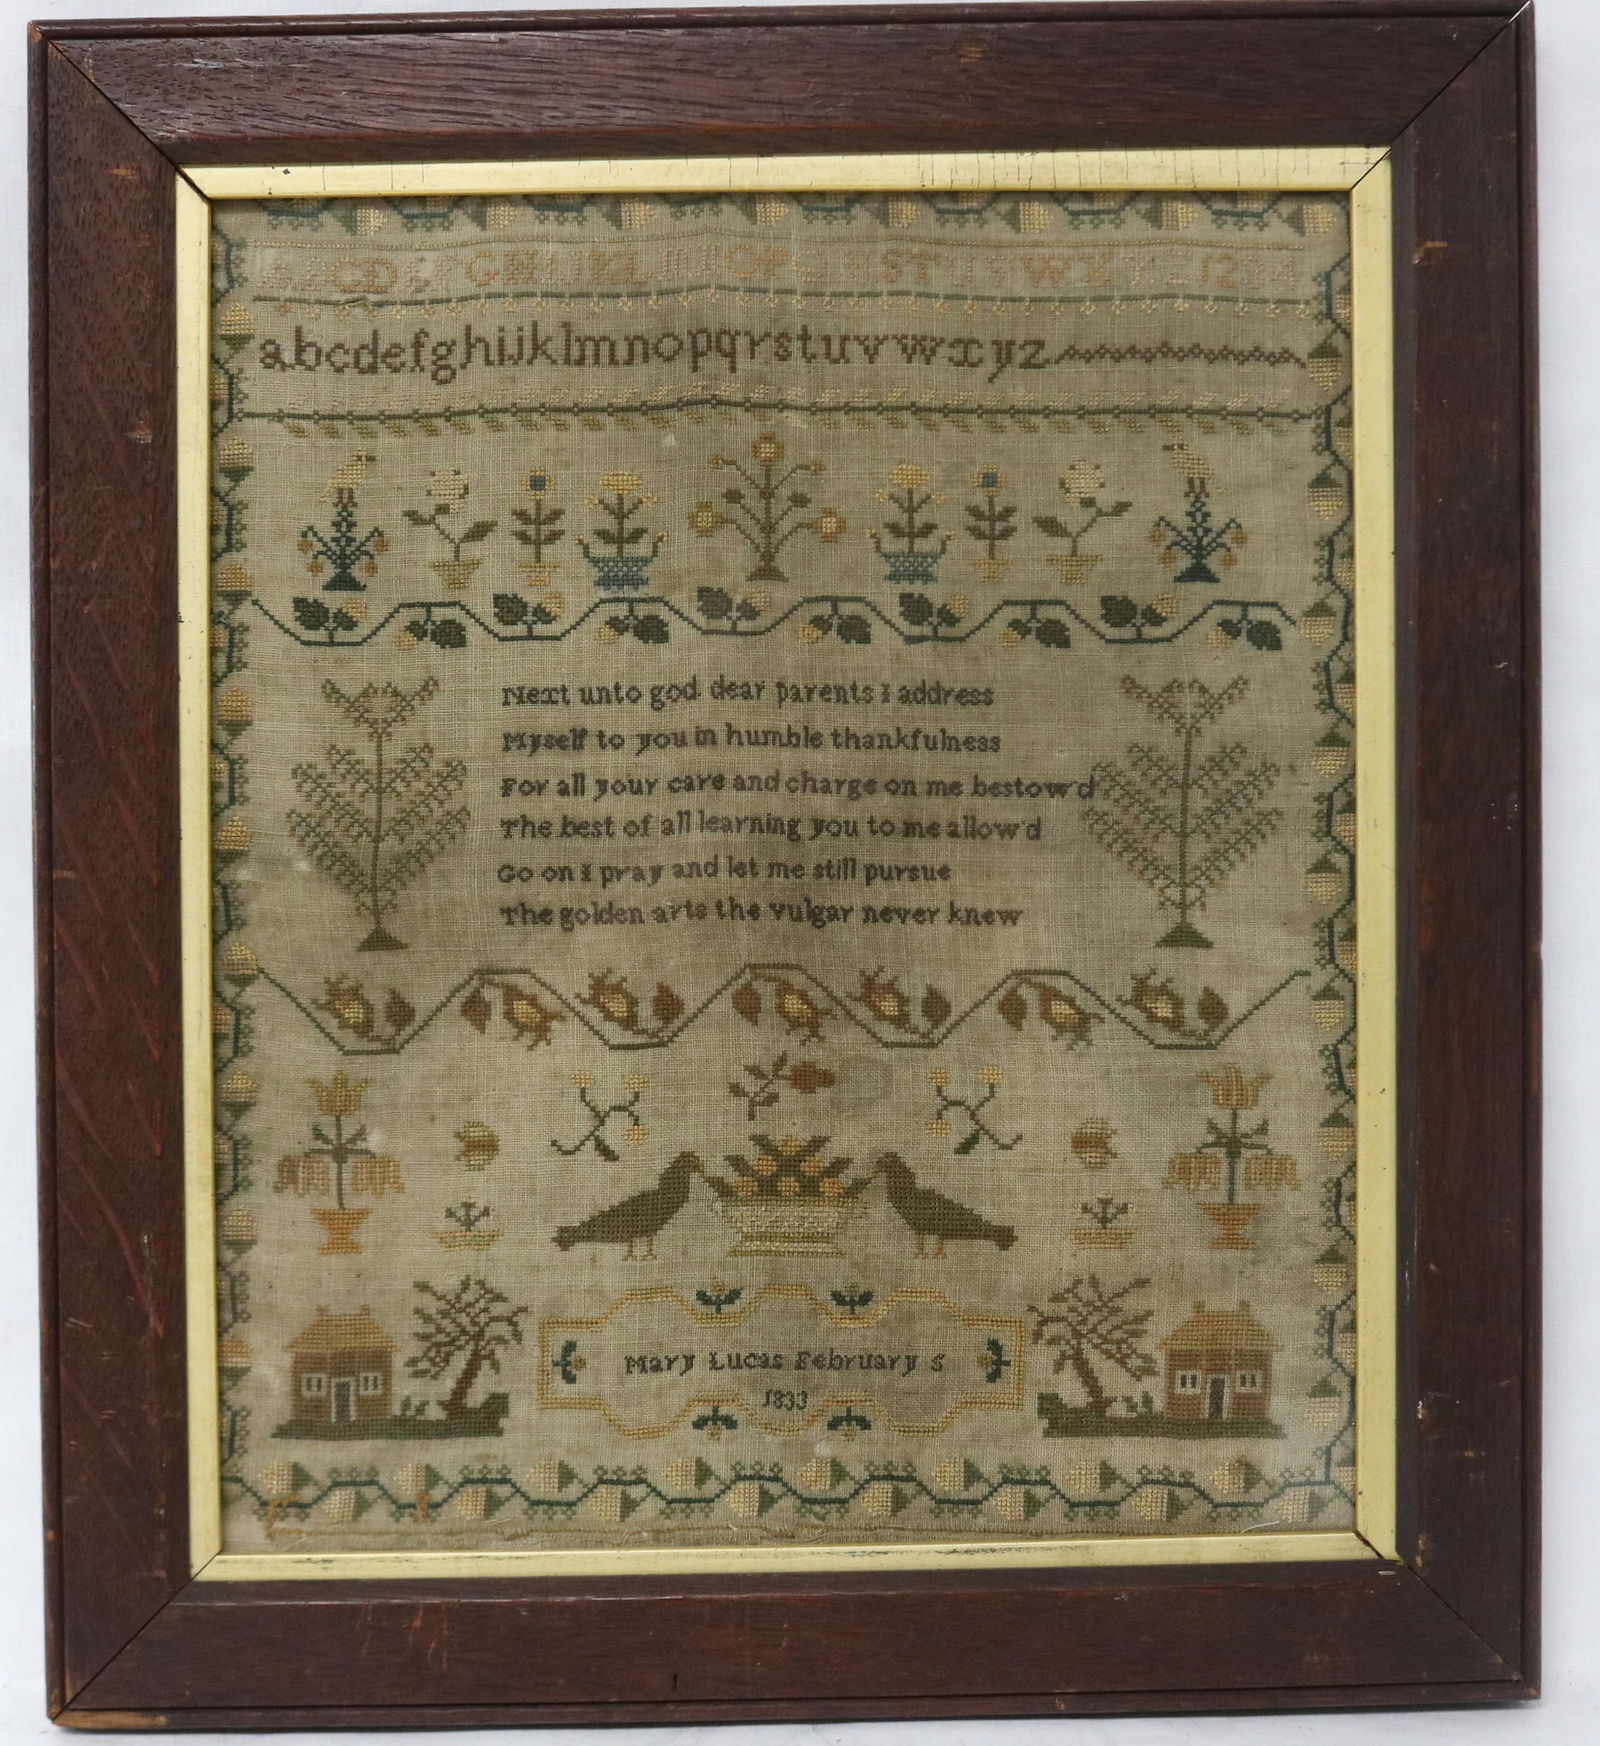 A B C D E F G H I J K L M N O P Q R S T U V W X Y Z 1 2 3 4
abcdefghijklmnopqrstuvwxyz
Next unto god dear parents I address
Myself to you in humble thankfulness
For all your care and charge on me bestow'd
The best of all learning you to me allow'd
Go on I pray and let me still pursue
The golden arts the vulgar never knew
Mary Lucas February 5
1833